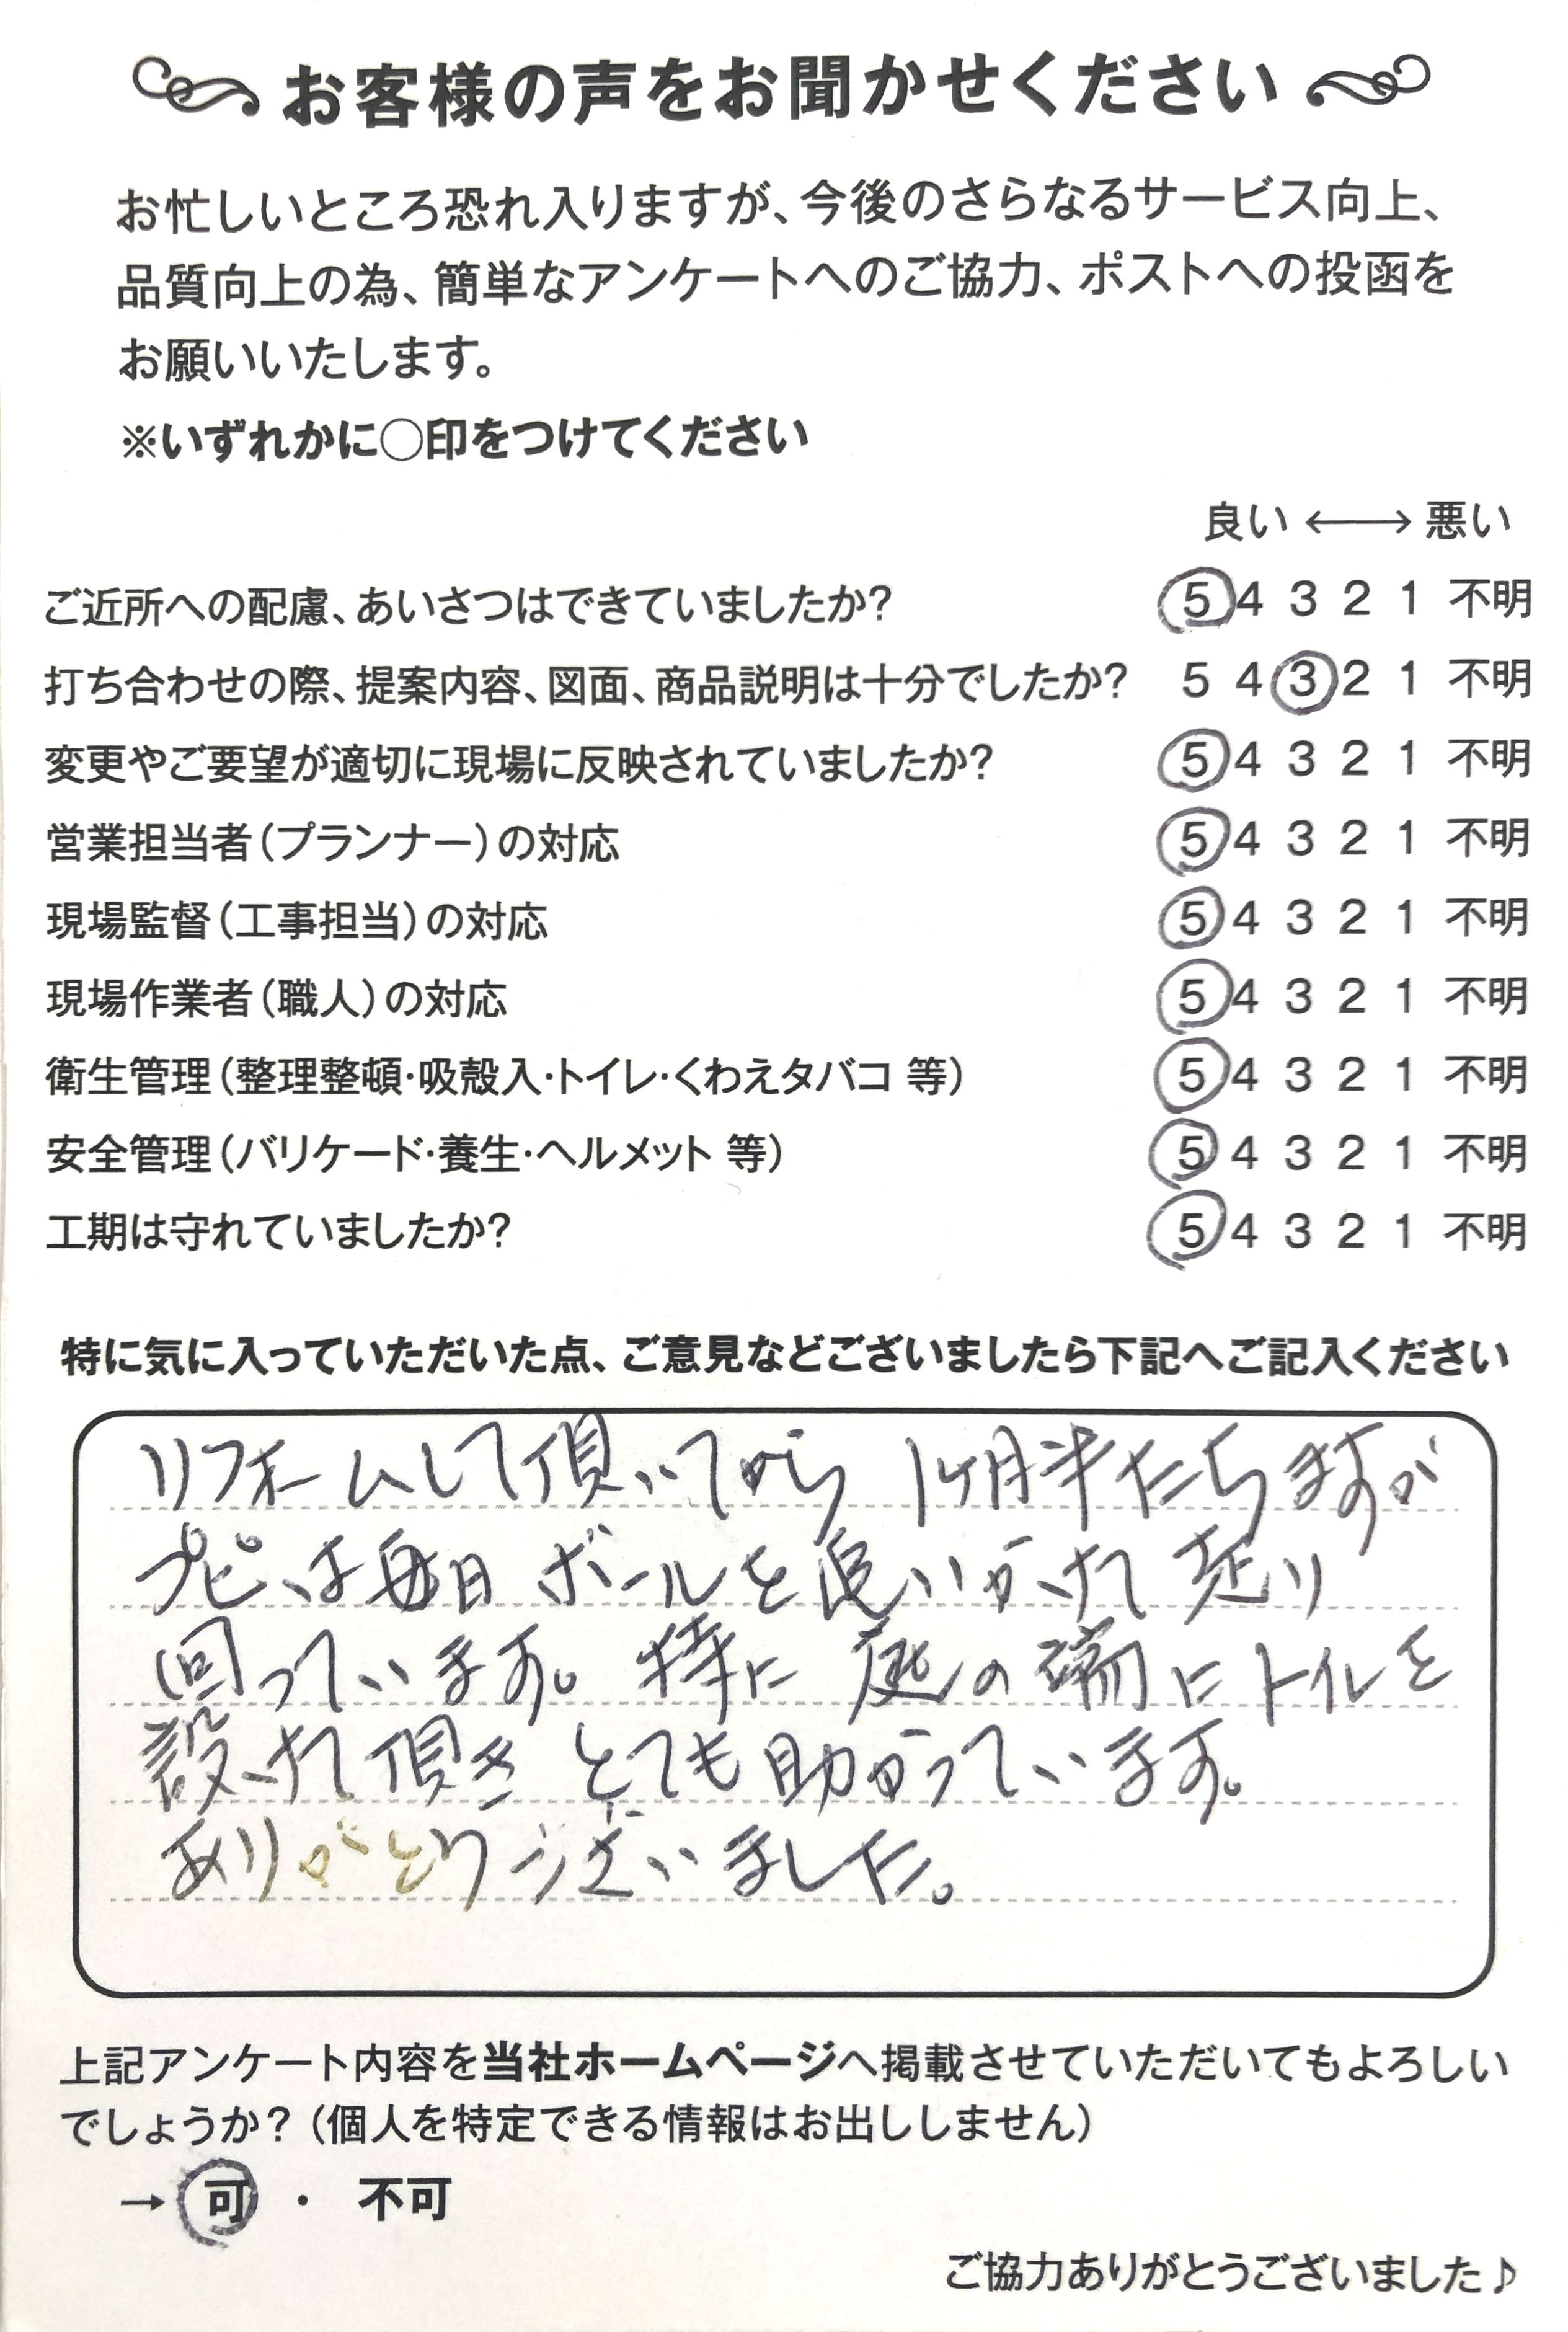 お客様の声をお聞かせください
お忙しいところ恐れ入りますが、今後のさらなるサービス向上、
品質向上の為、簡単なアンケートへのご協力、ポストへの投函を
お願いいたします。
※いずれかに○印をつけてください
良い ⟷ 悪い
ご近所への配慮、あいさつはできていましたか? 5 4 3 2 1 不明
打ち合わせの際、提案内容、図面、商品説明は十分でしたか? 5 4 3 2 1 不明
変更やご要望が適切に現場に反映されていましたか? 5 4 3 2 1 不明
営業担当者(プランナー)の対応 5 4 3 2 1 不明
現場監督(工事担当)の対応 5 4 3 2 1 不明
現場作業者(職人)の対応 5 4 3 2 1 不明
衛生管理(整理整頓・吸殻入・トイレ・くわえタバコ 等) 5 4 3 2 1 不明
安全管理(バリケード・養生・ヘルメット 等) 5 4 3 2 1 不明
工期は守れていましたか? 5 4 3 2 1 不明
特に気に入っていただいた点、ご意見などございましたら下記へご記入ください
リフォームして頂いてから 1ヶ月半たちますが
プピは毎日 ボールを追いかけて 走り
回っています。特に 庭の端にトイレを
設けて頂き とても助かっています。
ありがとうございました。
上記アンケート内容を当社ホームページへ掲載させていただいてもよろしい
でしょうか?(個人を特定できる情報はお出ししません)
→ 可 ・ 不可
ご協力ありがとうございました♪